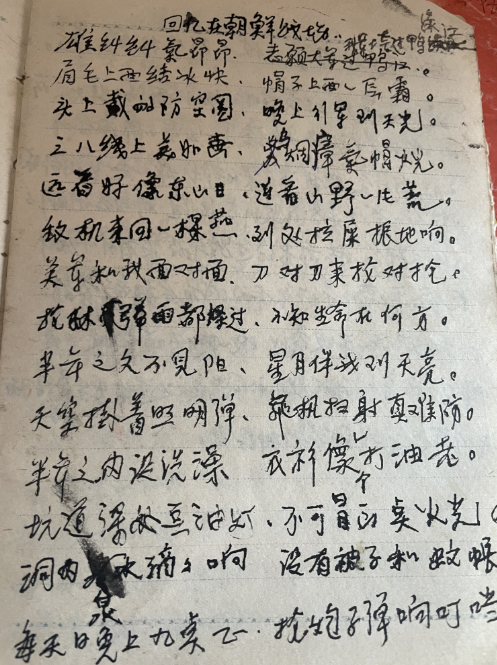 回忆在朝鲜战场
雄纠纠 气昂昂。志愿大军过鸭江。
眉毛上面结冰快，帽子上面一层霜。
头上戴的防空圈，晚上行军到天光。
三八线上美如画，烟瘴气帽火光。
远看好像东山日，近看山野一片荒。
敌机来回一梭燕，到处拉屎振地响。
美军和我面对面，刀对刀来枪对枪。
枪林弹雨都燥过，不知生命在何方。
半年之久不见阳，星月伴我到天亮。
天空掛着照明弹，敌机扫射真难防。
半年之内没洗澡 衣衫像个打油老。
坑道深处豆油灯，不可冒白点火光
洞内泉水滴々响 没有被子和蚊帐
每天日晚上九点正，枪炮子弹响叮当